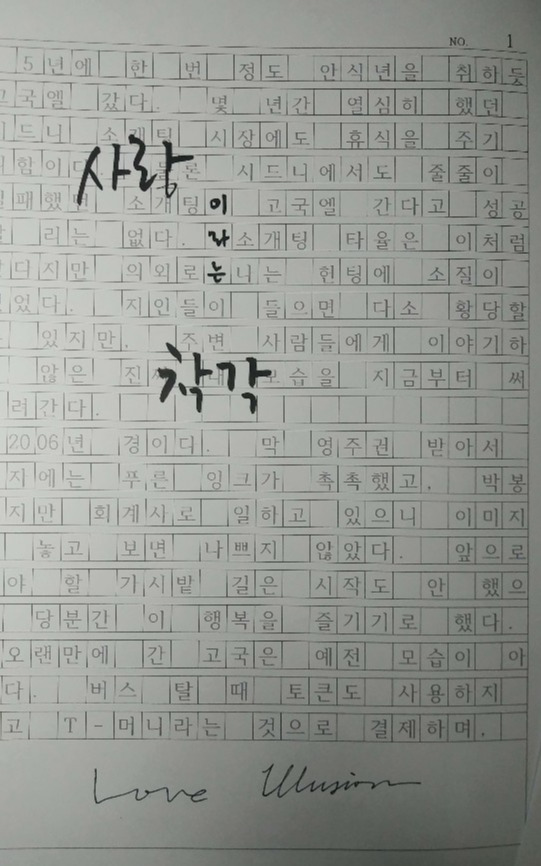 NO. 1
5년에 한 번 정도 안식년을 취하듯
고국엘 갔다. 몇 년간 열심히 했던
드니 소개팅 시장에도 휴식을 주기
함이다 물론 시드니에서도 줄줄이
사랑
패했던 소개팅이 고국엘 간다고 성공
이라는
리는 없다. 소개팅 타율은 이처럼
다지만 의외로 나는 헌팅에 소질이
있었다. 지인들이 들으면 다소 황당할
있지만, 주변 사람들에게 이야기하
착각
않은 모습을 지금부터 써
려간다.
2006년 경이다. 막 영주권 받아서
지에는 푸른 잉크가 촉촉했고, 박봉
지만 회계사로 일하고 있으니 이미지
놓고 보면 나쁘지 않았다. 앞으로
야 할 가시밭 길은 시작도 안 했으
당분간 이 행복을 즐기기로 했다.
오랜만에 간 고국은 예전 모습이 아
다. 버스 탈 때 토큰도 사용하지
고 T-머니라는 것으로 결제하며.
Love Illusion